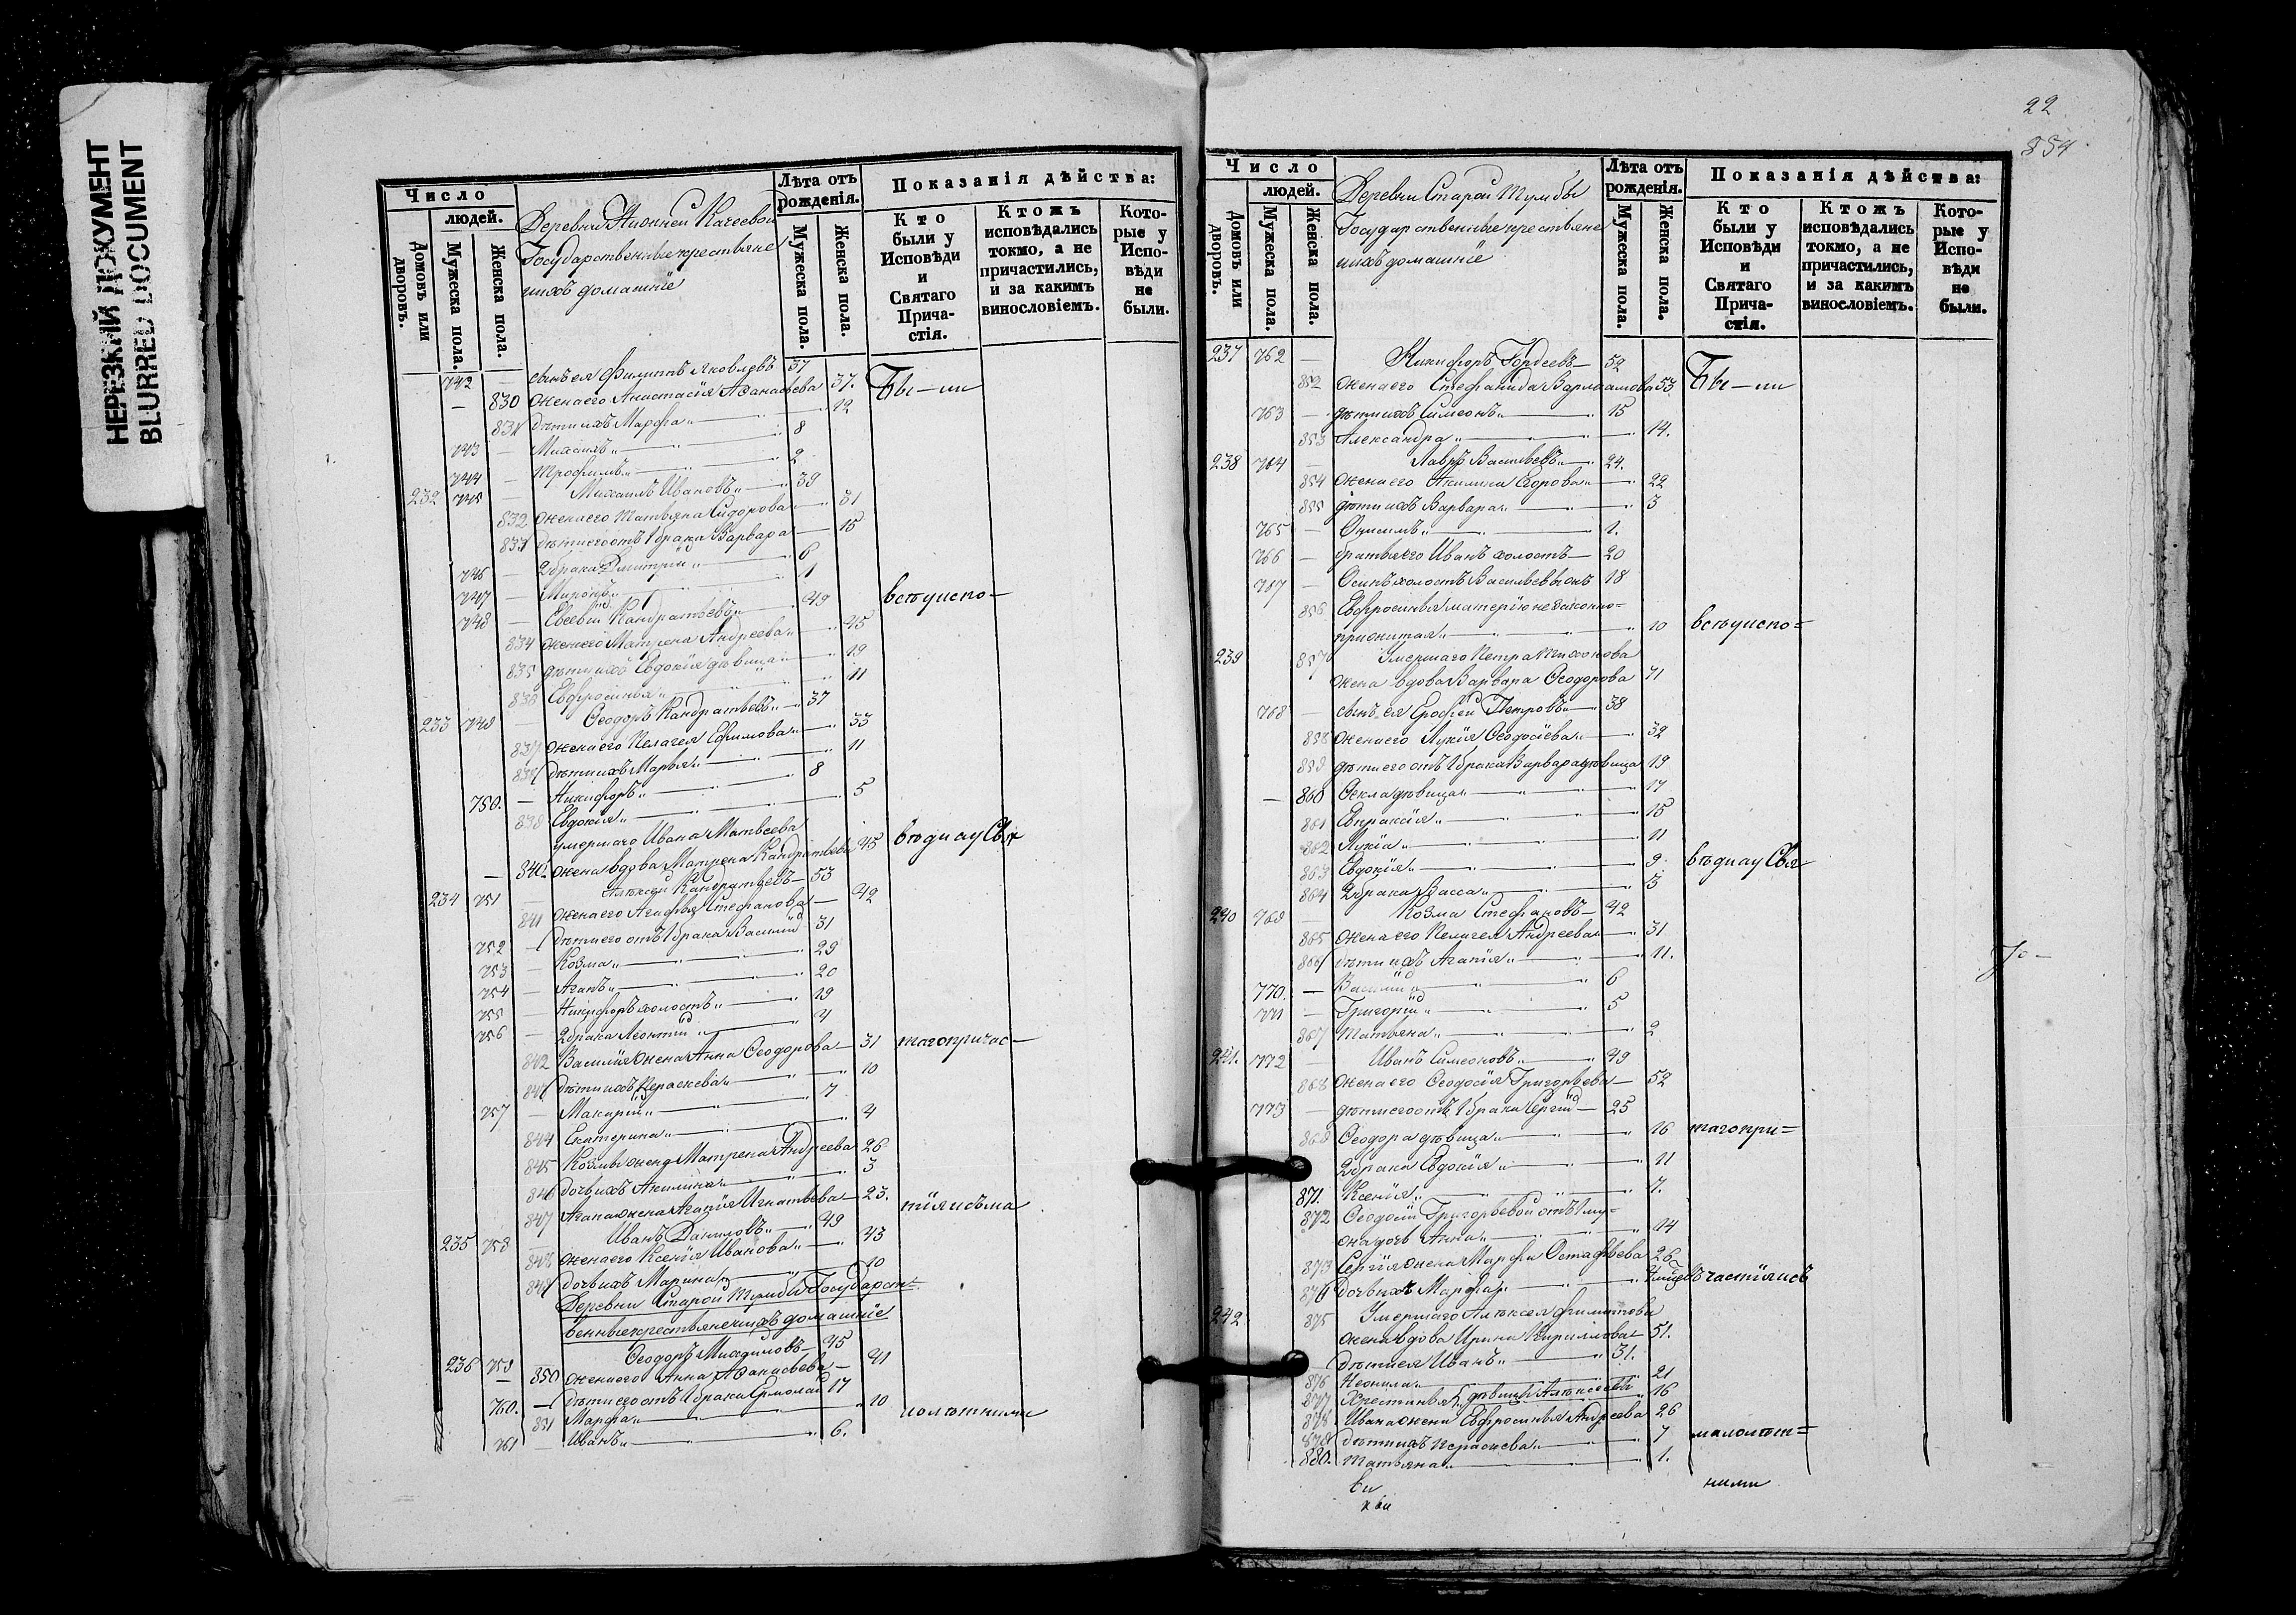 НЕРЕЗКИЙ ДОКУМЕНТ
BLURRED DOCUMENT
Число
людей.
Домовъ или дворовъ.
Мужеска пола.
Женска пола.
Деревни Нижней Качеевой
Государственные крестьяне
и ихъ домашніе
Лѣта отъ рожденія.
Мужеска пола.
Женска пола.
Показанія дѣйства:
Кто были у Исповѣди и Святаго Причастія.
Ктожъ исповѣдались токмо, а не причастились, и за какимъ винословіемъ.
Которые у Исповѣди не были.
742 — сынъ ея Филиппъ Яковлевъ 37
— 830 жена его Анастасія Аѳанасьева 37. Бы-ли
831 дѣти ихъ Марѳа 12
743 — Михаилъ 8
744 — Трофимъ 2
232 745 — Михаилъ Ивановъ 39
832 жена его Татьяна Сидорова 31
833 дѣти его отъ 1 брака Варвара 15
746 — 2 брака Димитрій 6
747 — Миронъ 1
748 — Евсевій Кандратьевъ 49 всѣ у испо-
834 жена его Матрена Андреева 45
835 дѣти ихъ Евдокія дѣвица 19
836 Евфросинья 11
233 749 — Ѳеодоръ Кандратьевъ 37
837 жена его Пелагея Ефимова 33
838 дѣти ихъ Марья 11
750. — Никифоръ 8
839 Евдокія 5
умершаго Ивана Матвеева
— 840 жена вдова Матрена Кандратьева 45 вѣди и у Свя
234 751 — Алексѣй Кандратьевъ 53
841 жена его Агафья Стефанова 42
752 — дѣти его отъ 1 брака Василій 31
753 — Козма 29
754 — Агапъ 20
755 — Никифоръ холостъ 19
756 — 2 брака Леонтій 4
842 Василія жена Анна Ѳеодорова 31 таго причас-
843 дѣти ихъ Параскева 10
757 — Макарій 7
844 Екатерина 4
845 Козмы жена Матрена Андреева 26
846 дочь ихъ Акилина 3
847 Агапа жена Агапія Игнатьева 23. тія исъ ма
235 758 Иванъ Даниловъ 49
848 жена его Ксенія Иванова 43
849 дочь ихъ Марина 10
Деревни Старой Тумбы Государст-
венные крестьяне и ихъ домашніе
236 759 — Ѳеодоръ Михайловъ 45
850 жена его Анна Аѳанасьева 41
760. — дѣти его отъ 1 брака Ермолай 17
851 Марѳа 10 лолѣтними
761 — Иванъ 6.
22
854
Число
людей.
Домовъ или дворовъ.
Мужеска пола.
Женска пола.
Деревни Старой Тумбы
Государственные крестьяне
и ихъ домашніе
Лѣта отъ рожденія.
Мужеска пола.
Женска пола.
Показанія дѣйства:
Кто были у Исповѣди и Святаго Причастія.
Ктожъ исповѣдались токмо, а не причастились, и за какимъ винословіемъ.
Которые у Исповѣди не были.
237 762 — Никифоръ Гордеевъ 52
852 жена его Стефанида Варлаамова 53 Бы-ли
763 — дѣти ихъ Симеонъ 15
853 Александра 14.
238 764 — Лавръ Васильевъ 24.
854 жена его Акилина Егорова 22
855 дѣти ихъ Варвара 3
765 — Онисимъ 1.
766 — братья его Иванъ холостъ 20
767 — Осипъ холостъ Васильевы онъ 18
856 Евфросинья матерію незаконно-
прижитая 10 всѣ у испо=
239 857 Умершаго Петра Тихонова
жена вдова Варвара Ѳеодорова 71
768 — сынъ ея Ерофей Петровъ 38
858 жена его Лукія Ѳеодосіева 32
859 дѣти его отъ 1 брака Варвара дѣвица 19
— 860 Ѳекла дѣвица 17
861 Евпраксія 15
862 Лукіа 11
863 Евдокія 9. вѣди и у Свя
864 2 брака Васса 3
240 769 — Козма Стефановъ 42
865 жена его Пелагея Андреева 31
866 дѣти ихъ Агапія 11.
770. — Василій 6
771 — Григорій 5
867 Татьяна 2
241. 772 — Иванъ Симеоновъ 49
868 жена его Ѳеодосія Григорьева 52
773 — дѣти его отъ 1 брака Сергій 25
869 Ѳеодора дѣвица 16 таго при=
2 брака Евдокія 11
871. Ксенія 7.
872 Ѳеодосіи Григорьевой отъ 1 му-
жа дочь Анна 14
873 Сергія жена Марѳа Остафьева 26
874 дочь ихъ Марѳа частія исъ
242 875 Умершаго Алексея Филиппова
жена вдова Ирина Кирилова 51.
— дѣти ея Иванъ 31.
876 Неонила 21
877 Христинья дѣвицы Алексеевы 16
878 Ивана жена Евфросинья Андреева 26
879 дѣти ихъ Параскева 7 малолѣт=
880. Татьяна 1.
ними